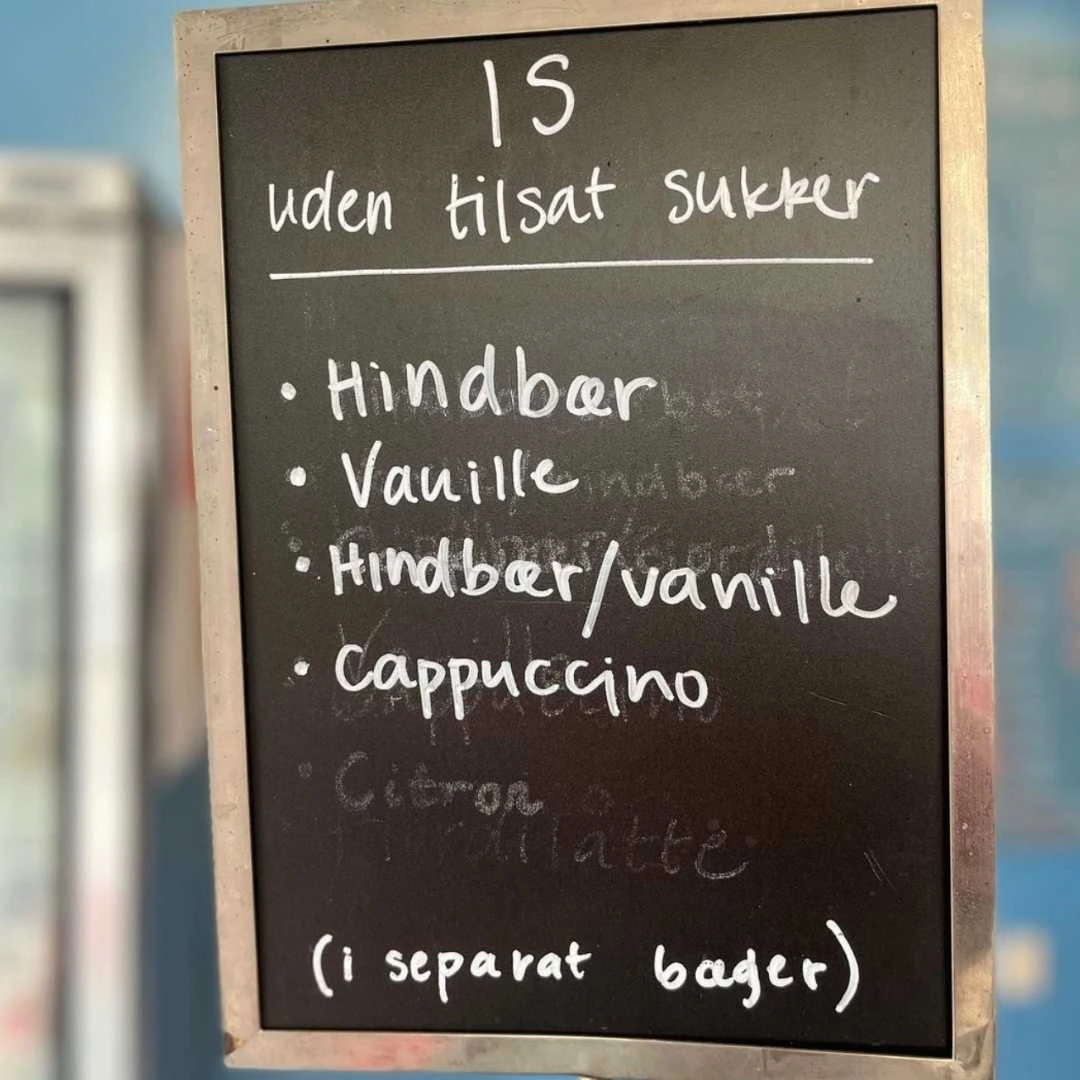 IS
uden tilsat sukker
• Hindbær
• Vanille
• Hindbær/vanille
• Cappuccino
Citron
(i separat bæger)